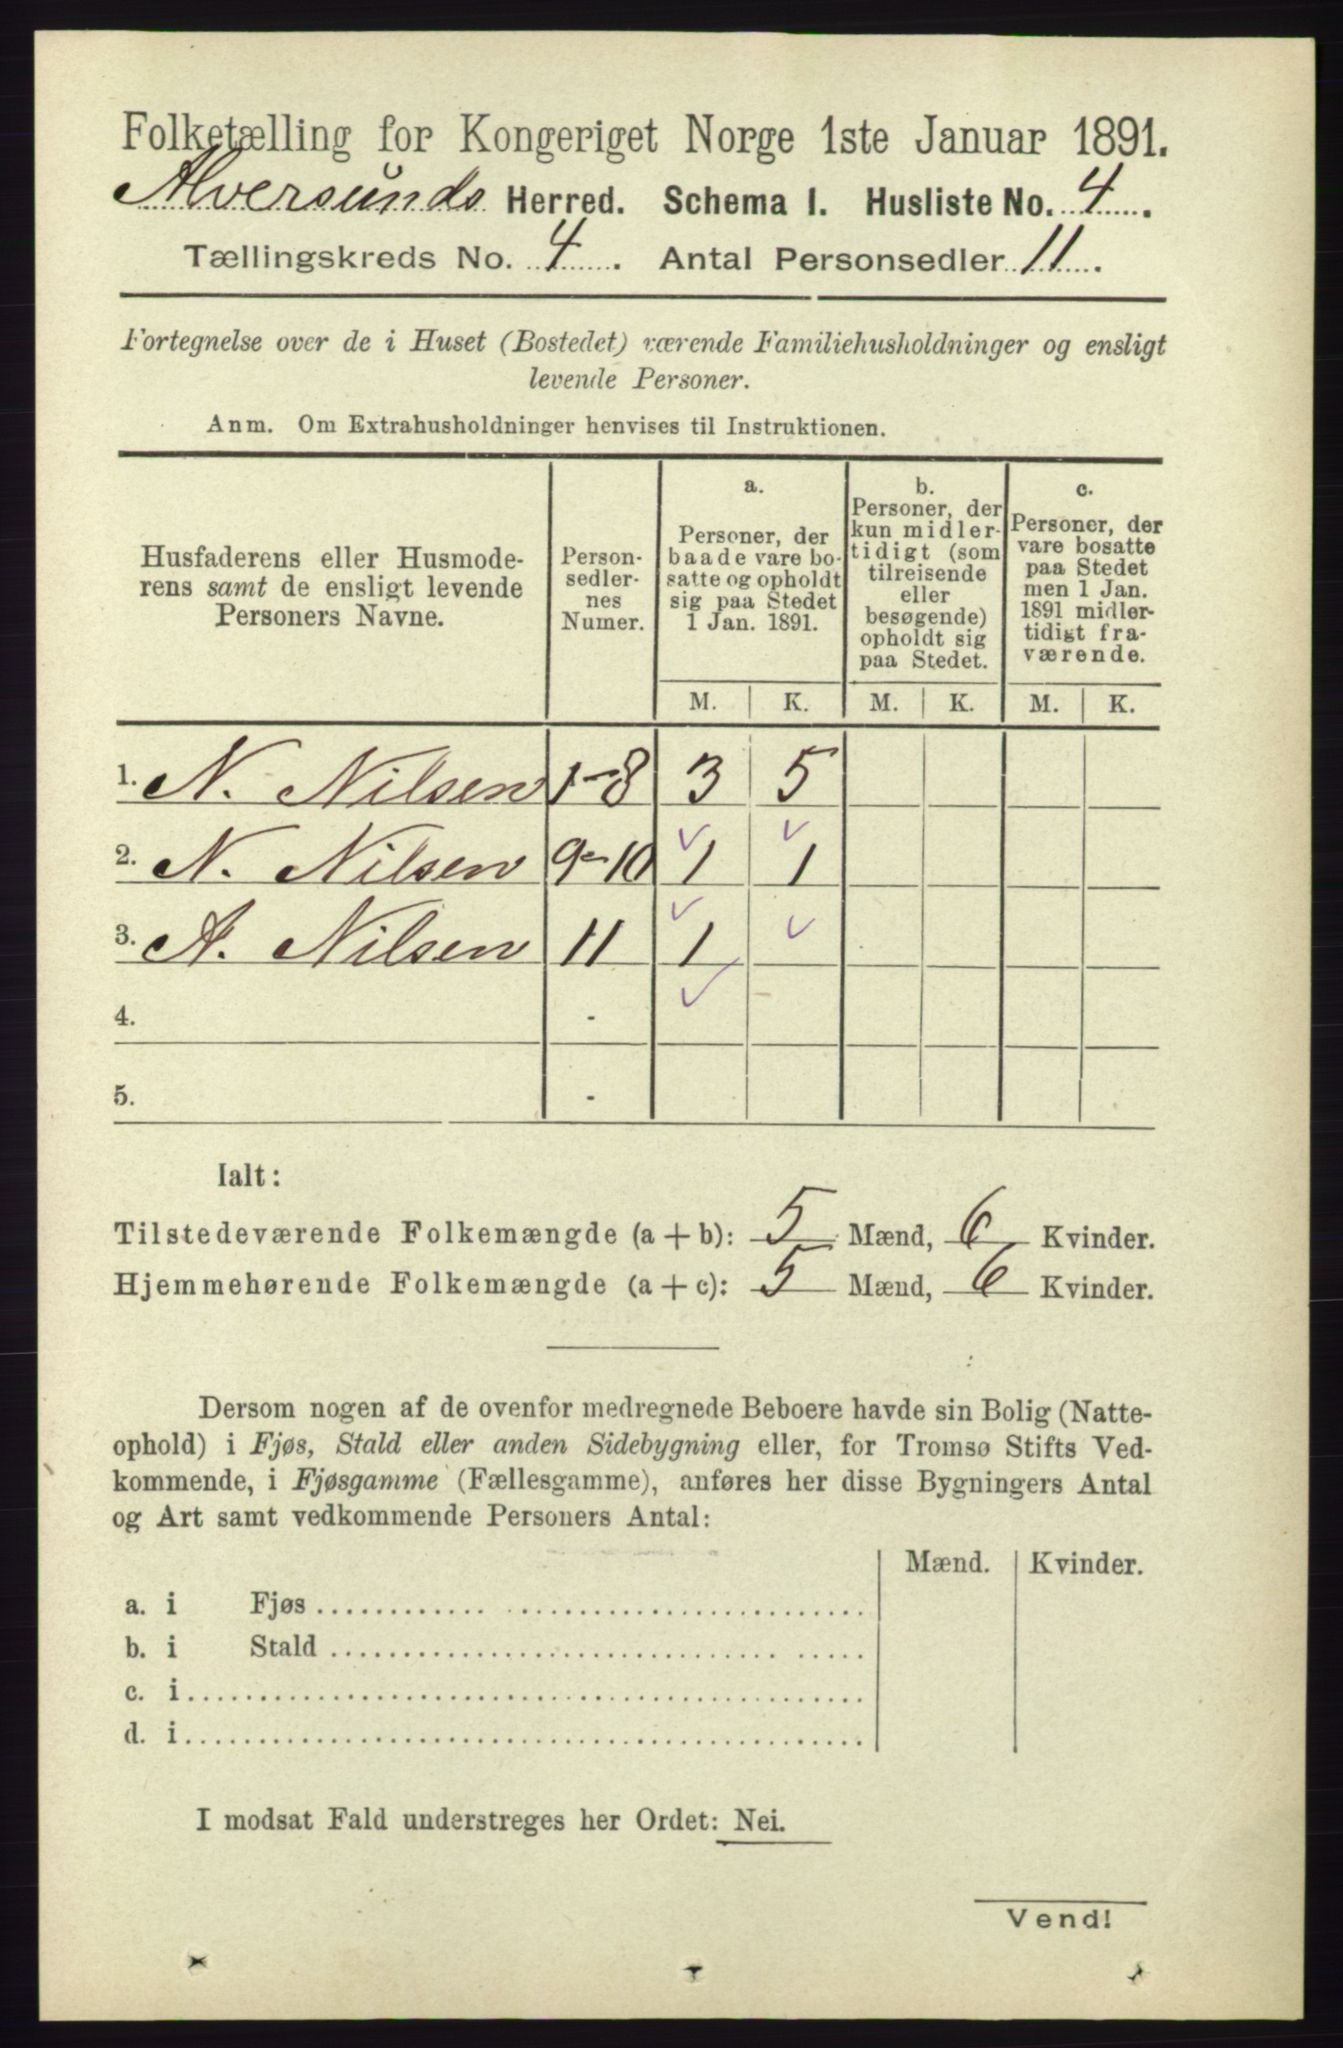 Folketælling for Kongeriget Norge 1ste Januar 1891.
Alversunds Herred. Schema I. Husliste No. 4.
Tællingskreds No. 4. Antal Personsedler 11.
Fortegnelse over de i Huset (Bostedet) værende Familiehusholdninger og ensligt
levende Personer.
Anm. Om Extrahusholdninger henvises til Instruktionen.
Husfaderens eller Husmode-
rens samt de ensligt levende
Personers Navne.
Person-
sedler-
nes
Numer.
a.
Personer, der
baade vare bo-
satte og opholdt
sig paa Stedet
1 Jan. 1891.
b.
Personer, der
kun midler-
tidigt (som
tilreisende
eller
besøgende)
opholdt sig
paa Stedet.
c.
Personer, der
vare bosatte
paa Stedet
men 1 Jan.
1891 midler-
tidigt fra-
værende.
M. K. M. K. M. K.
1. N. Nilsen 1-8 3 5
2. N. Nilsen 9-10 1 1
3. A. Nilsen 11 1
4. -
5. -
Ialt:
Tilstedeværende Folkemængde (a + b): 5 Mænd, 6 Kvinder.
Hjemmehørende Folkemængde (a + c): 5 Mænd, 6 Kvinder.
Dersom nogen af de ovenfor medregnede Beboere havde sin Bolig (Natte-
ophold) i Fjøs, Stald eller anden Sidebygning eller, for Tromsø Stifts Ved-
kommende, i Fjøsgamme (Fællesgamme), anføres her disse Bygningers Antal
og Art samt vedkommende Personers Antal:
Mænd. Kvinder.
a. i Fjøs
b. i Stald
c. i
d. i
I modsat Fald understreges her Ordet: Nei.
Vend!